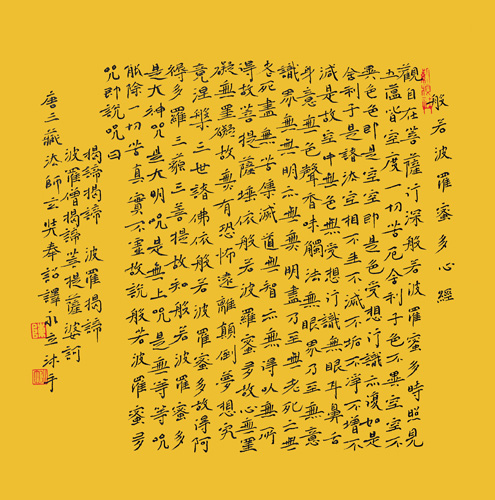 般若波羅蜜多心經
觀自在菩薩行深般若波羅蜜多時照見
五蘊皆空度一切苦厄舍利子色不異空空不
異色色即是空空即是色受想行識亦復如是
舍利子是諸法空相不生不滅不垢不淨不增不
減是故空中無色無受想行識無眼耳鼻舌
身意無色聲香味觸法無眼界乃至無意
識界無無明亦無無明盡乃至無老死亦無
老死盡無苦集滅道無智亦無得以無所
得故菩提薩埵依般若波羅蜜多故心無罣
礙無罣礙故無有恐怖遠離顛倒夢想究
竟涅槃三世諸佛依般若波羅蜜多故得阿
耨多羅三藐三菩提故知般若波羅蜜多
是大神咒是大明咒是無上咒是無等等咒
能除一切苦真實不虛故說般若波羅蜜多
咒即說咒曰
揭諦揭諦 波羅揭諦
波羅僧揭諦 菩提薩婆訶
唐三藏法師玄奘奉詔譯 永立沐手